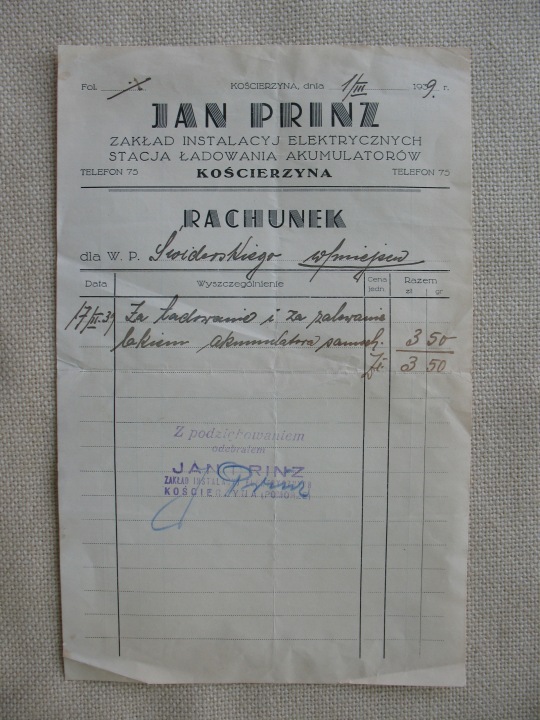 Fol. KOŚCIERZYNA, dnia 1/III 1939. r.
JAN PRINZ
ZAKŁAD INSTALACYJ ELEKTRYCZNYCH
STACJA ŁADOWANIA AKUMULATORÓW
TELEFON 75 KOŚCIERZYNA TELEFON 75
RACHUNEK
dla W. P. Świderskiego w/miejscu
Data Wyszczególnienie Cena jedn. Razem
zł gr
Za ładowanie i za zalewanie
lakiem akumulatora samoch. 3 50
Zł 3 50
Z podziękowaniem
odebrałem
JAN PRINZ
KOŚCIERZYNA (POMORZE)
Prinz